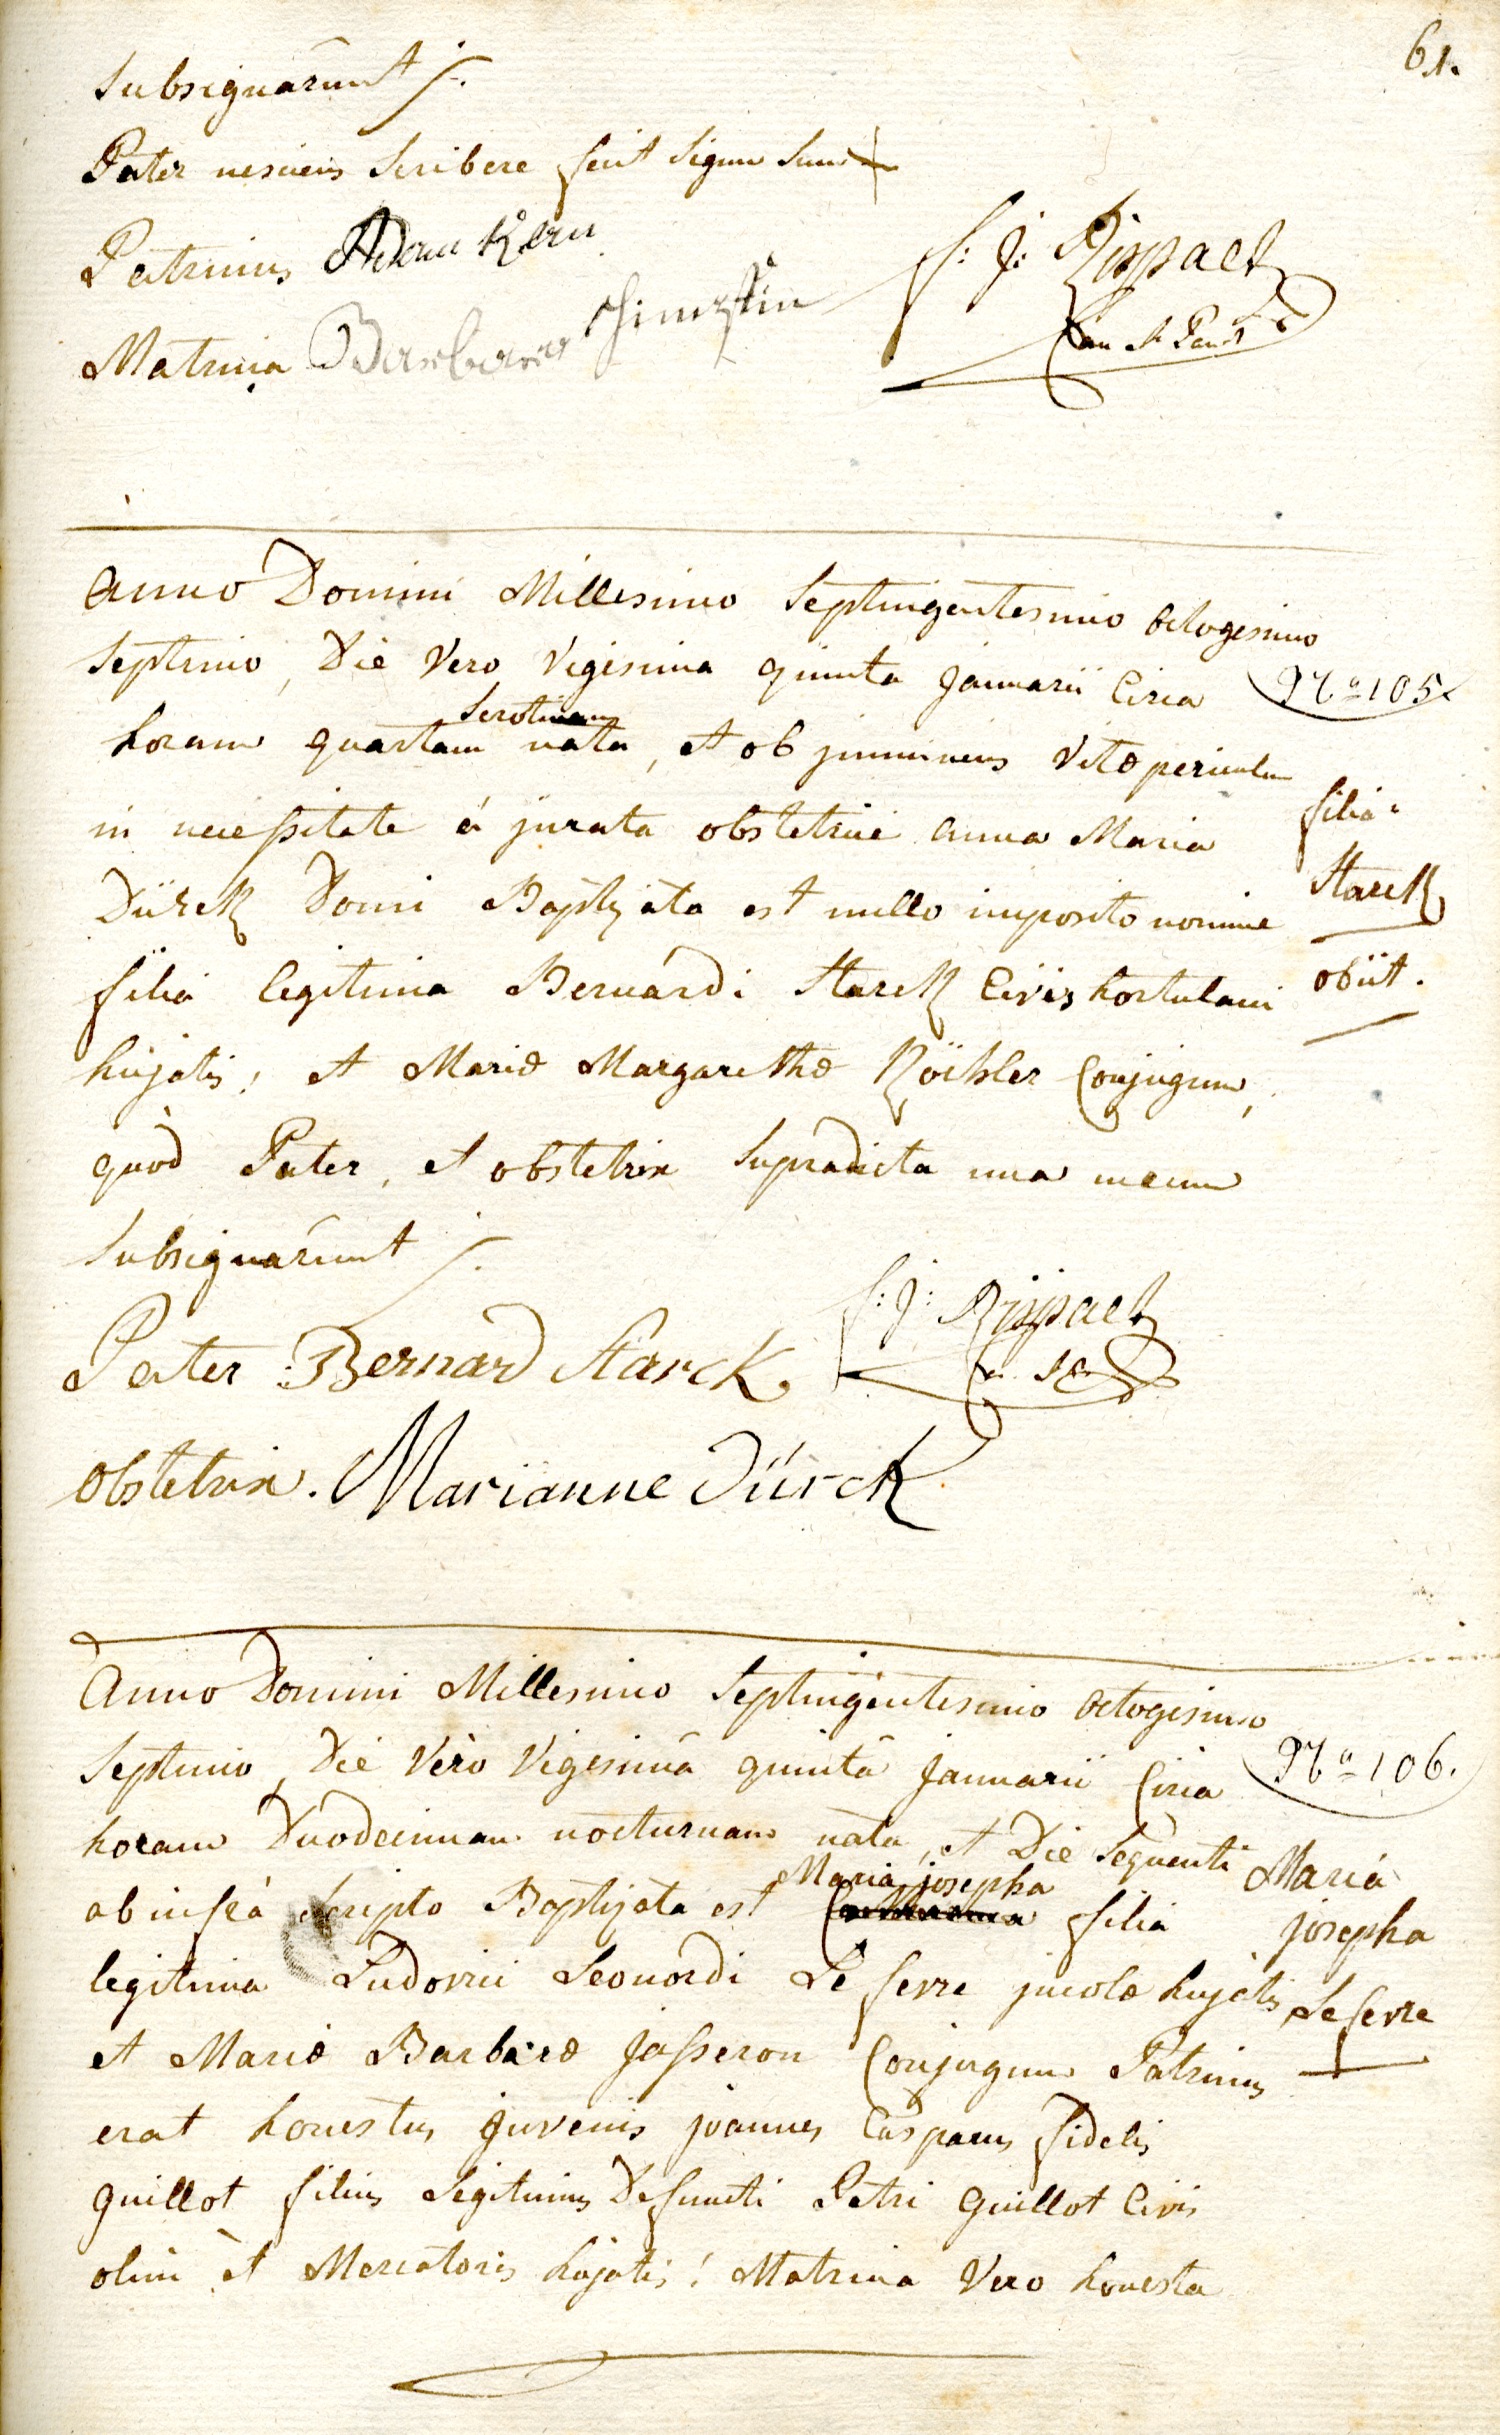 61.
subsignârunt j.
Pater nesciens scribere fecit signum suum +
Patrinus Adam Kern
F: J: Rispact
Matrina Barbara
Can St Pauli
Anno Domini Millesimo Septingentesimo octogesimo
septimo, Die vero vigesima quinta januarii circa
Nro 105.
horam quartam serotinam nata, et ob jmminens vitæ periculum
in necessitate á jurata obstetrice anna Maria
Dürck Domi Baptizata est nullo imposito nomine
filia legitima Bernardi Starck civis hortulani
hujatis; et Mariæ Margarethæ Köhler Conjugum,
filia
Starck
obiit.
quòd Pater, et obstetrix supradicta una mecum
subsignârunt j.
F: J: Rispact
Pater Bernard Starck.
obstetrix. Marianne Dürck
Anno Domini Millesimo Septingentesimo octogesimo
septimo, Die vero vigesimâ quintâ januarii circa
Nro 106.
horam Duodecimam nocturnam nata, et Die sequenti
ab infrà scripto Baptizata est Maria josepha filia
legitima Ludovici Leonardi Le fevre jncolæ hujatis
Maria
josepha
Le fevre
et Mariæ Barbaræ jasseron Conjugum Patrinus
erat honestus juvenis joannes Casparus fidelis
guillot filius legitimus Defuncti Petri guillot civis
olim et Mercatoris hujatis; Matrina vero honesta